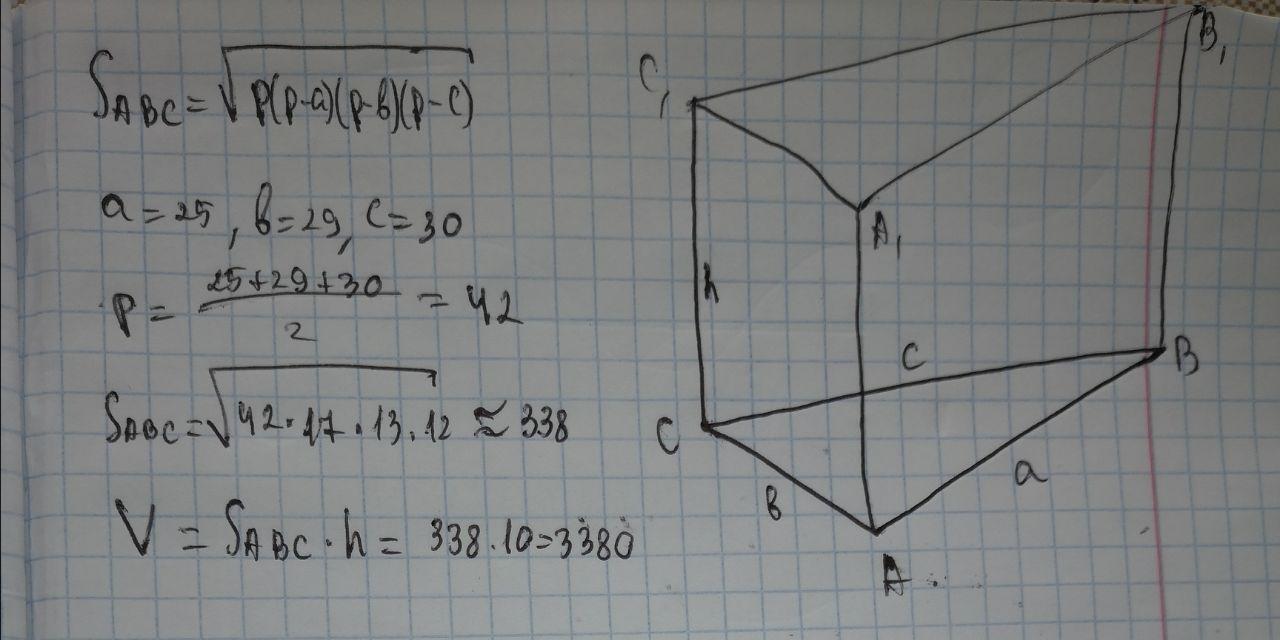 S_ABC = √p(p-a)(p-b)(p-c)
a = 25, b = 29, c = 30
p = (25+29+30)/2 = 42
S_ABC = √42·17·13·12 ≈ 338
V = S_ABC · h = 338·10=3380
C₁
B₁
A₁
h
c
B
C
a
b
A